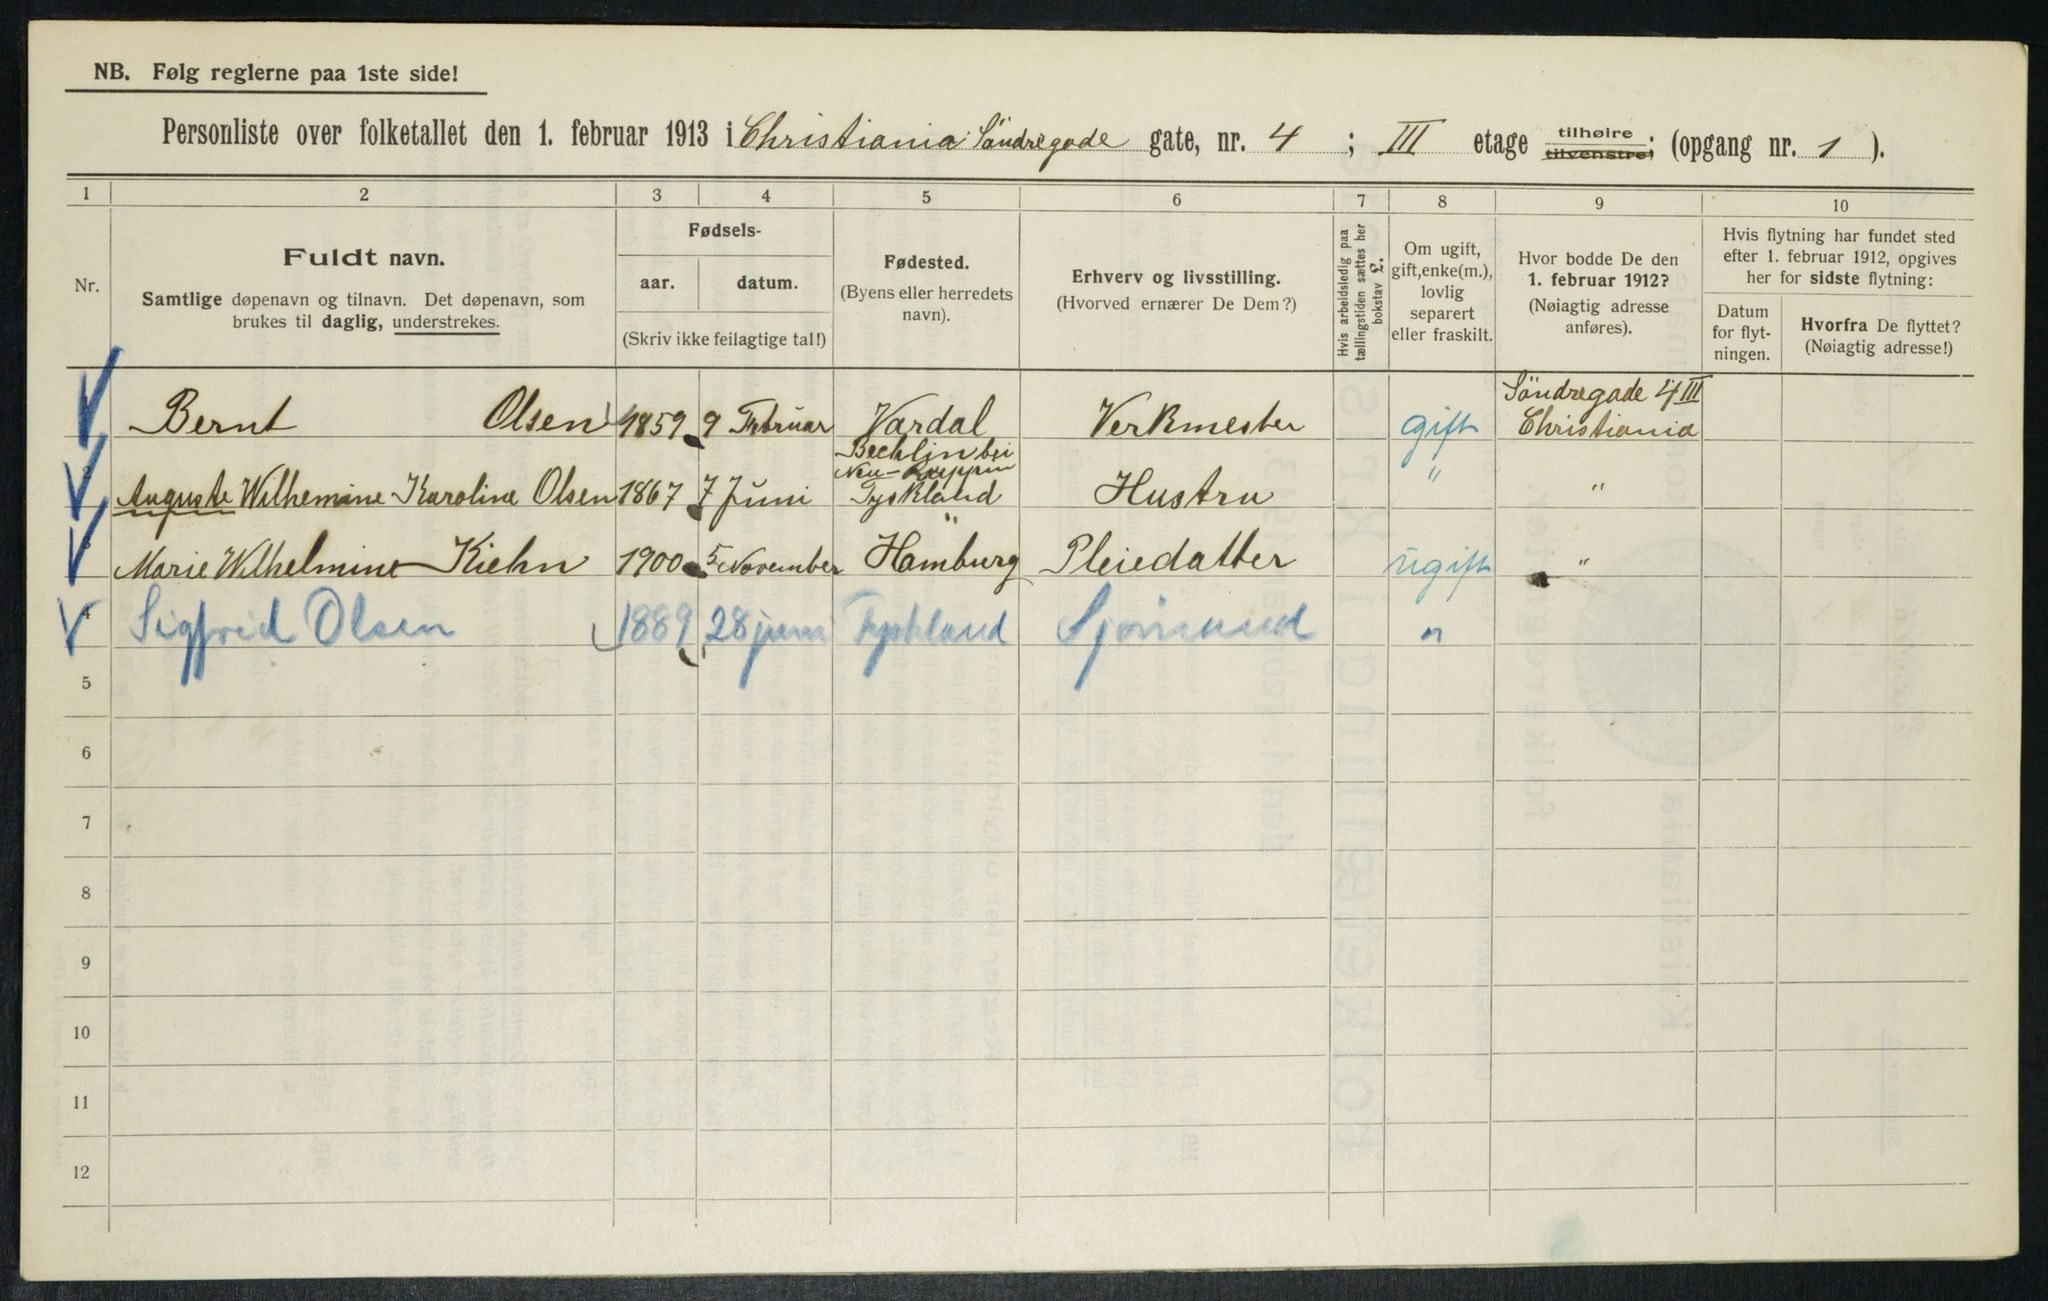 NB. Følg reglerne paa 1ste side!
Personliste over folketallet den 1. februar 1913 i Christiania Söndregade gate, nr. 4 ; III etage tilhøire tilvenstre; (opgang nr. 1 ).
1 2 3 4 5 6 7 8 9 10
Nr.
Fuldt navn.
Samtlige døpenavn og tilnavn. Det døpenavn, som
brukes til daglig, understrekes.
Fødsels-
aar. datum.
(Skriv ikke feilagtige tal!)
Fødested.
(Byens eller herredets
navn).
Erhverv og livsstilling.
(Hvorved ernærer De Dem?)
Hvis arbeidsledig paa
tællingstiden sættes her
bokstav L.
Om ugift,
gift, enke(m.),
lovlig
separert
eller fraskilt.
Hvor bodde De den
1. februar 1912?
(Nøiagtig adresse
anføres).
Hvis flytning har fundet sted
efter 1. februar 1912, opgives
her for sidste flytning:
Datum
for flyt-
ningen.
Hvorfra De flyttet?
(Nøiagtig adresse!)
Bernt Olsen 1859 9 Februar Vardal Verkmester gift Söndregade 4 III
Christiania
2 Auguste Wilhemine Karoline Olsen 1867 7 Juni Bechlin bei
Neu-Ruppin
Tyskland Hustru " "
3 Marie Wilhelmine Kiehn 1900 5 November Hamburg Pleiedatter ugift "
4 Sigfred Olsen 1889 28 juni Tyskland Sjömand "
5
6
7
8
9
10
11
12